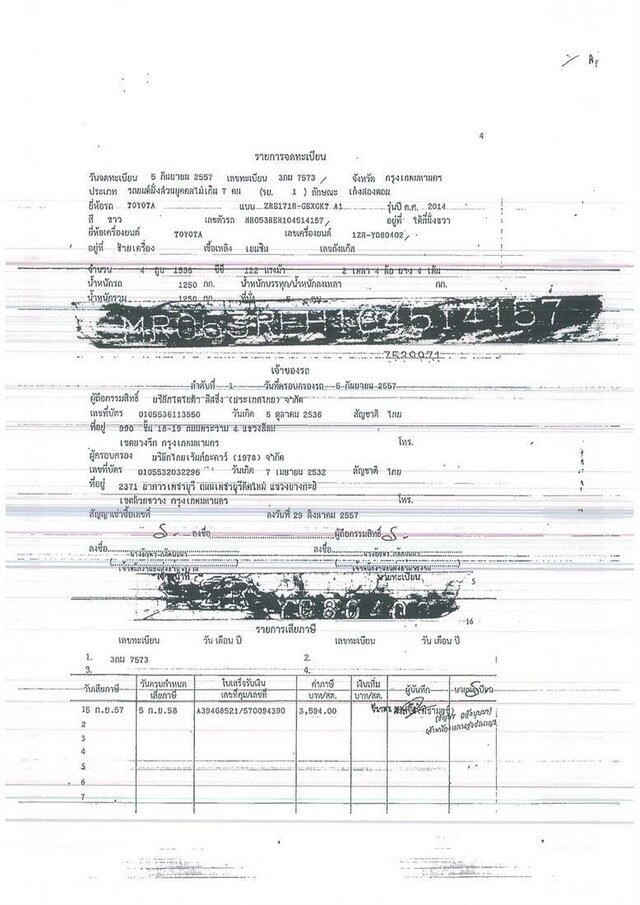 4
รายการจดทะเบียน
วันจดทะเบียน 5 กันยายน 2557 เลขทะเบียน 3กผ 7573 จังหวัด กรุงเทพมหานคร
ประเภท รถยนต์นั่งส่วนบุคคลไม่เกิน 7 คน (รย. 1 ) ลักษณะ เก๋งสองตอน
ยี่ห้อรถ TOYOTA แบบ ZRE171R-GEXGKT A1 รุ่นปี ค.ศ. 2014
สี ขาว เลขตัวรถ MR053REH104514157 อยู่ที่ ใต้ที่นั่งขวา
ยี่ห้อเครื่องยนต์ TOYOTA เลขเครื่องยนต์ 1ZR-Y080402
อยู่ที่ ซ้ายเครื่อง เชื้อเพลิง เบนซิน เลขถังแก๊ส
จำนวน 4 สูบ 1598 ซีซี 122 แรงม้า 2 เพลา 4 ล้อ ยาง 4 เส้น
น้ำหนักรถ 1250 กก. น้ำหนักบรรทุก/น้ำหนักลงเพลา กก.
น้ำหนักรวม 1250 กก. ที่นั่ง 5 คน
MR053REH104514157
7539971
เจ้าของรถ
ลำดับที่ 1 วันที่ครอบครองรถ 5 กันยายน 2557
ผู้ถือกรรมสิทธิ์ บริษัทโตโยต้า ลีสซิ่ง (ประเทศไทย) จำกัด
เลขที่บัตร 0105536113550 วันเกิด 5 ตุลาคม 2536 สัญชาติ ไทย
ที่อยู่ 990 ชั้น 18-19 ถนนพระราม 4 แขวงสีลม
เขตบางรัก กรุงเทพมหานคร โทร.
ผู้ครอบครอง บริษัทไทยเร้นท์อะคาร์ (1978) จำกัด
เลขที่บัตร 0105532032296 วันเกิด 7 เมษายน 2532 สัญชาติ ไทย
ที่อยู่ 2371 อาคารเพชบุรี ถนนเพชบุรีตัดใหม่ แขวงบางกะปิ
เขตห้วยขวาง กรุงเทพมหานคร โทร.
สัญญาเช่าซื้อเลขที่ ลงวันที่ 29 สิงหาคม 2557
ลงชื่อ ผู้ถือกรรมสิทธิ์
ลงชื่อ ลงชื่อ
นายทะเบียน
5
Y080402
16
รายการเสียภาษี
เลขทะเบียน วัน เดือน ปี เลขทะเบียน วัน เดือน ปี
1. 3กผ 7573 2.
3. 4.
วันเสียภาษี วันครบกำหนดเสียภาษี ใบเสร็จรับเงิน เลขที่คุม/เลขที่ ค่าภาษี บาท/สต. เงินเพิ่ม บาท/สต. ผู้บันทึก นายทะเบียน
15 ก.ย.57 5 ก.ย.58 A39468521/570094390 3,594.00
2
3
4
5
6
7